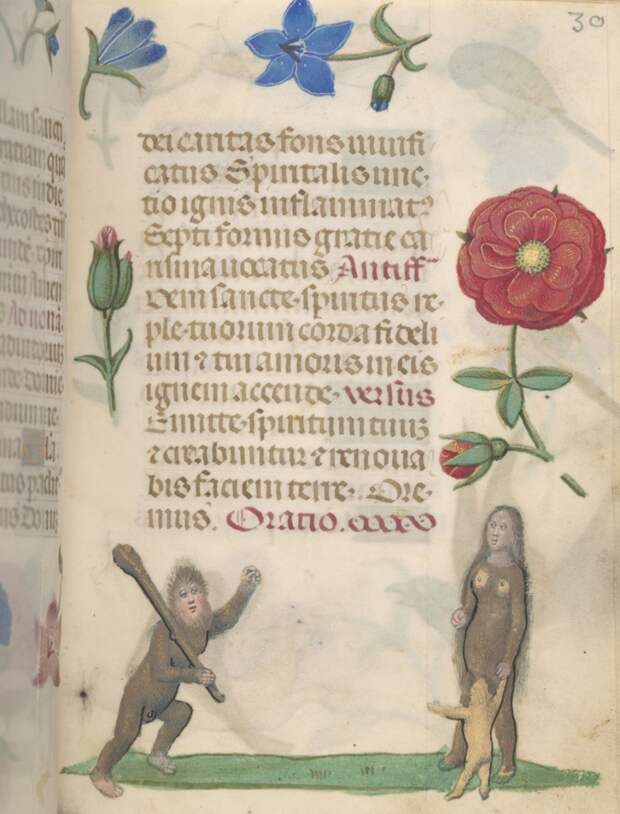 30
dei caritas fons uiuifi
catus Spiritalis unc-
tio ignis inflammatꝰ
Septiformis gratie ca
risma uocatus Antiff
Veni sancte spiritus re-
ple tuorum corda fideli
um ⁊ tui amoris in eis
ignem accende. versus
Emitte spiritum tuuꝫ
⁊ creabuntur ⁊ renoua
bis faciem terre. Ore-
mus. Oratio.